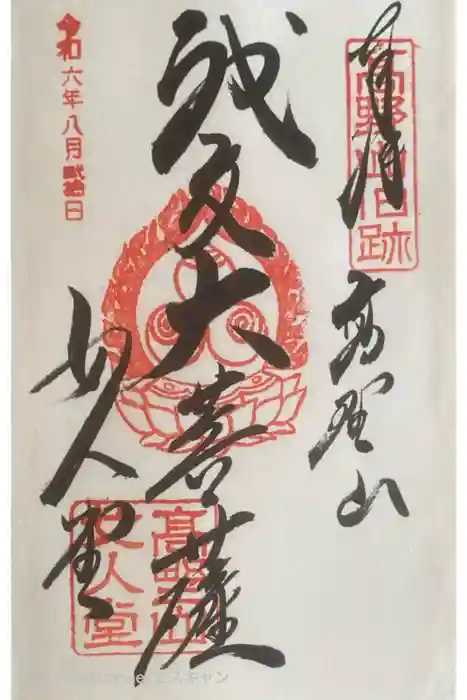 奉拝
高野山旧跡
高野山
神変大菩薩
女人堂
高野山
女人堂
令和六年八月弐拾日
でスキャン